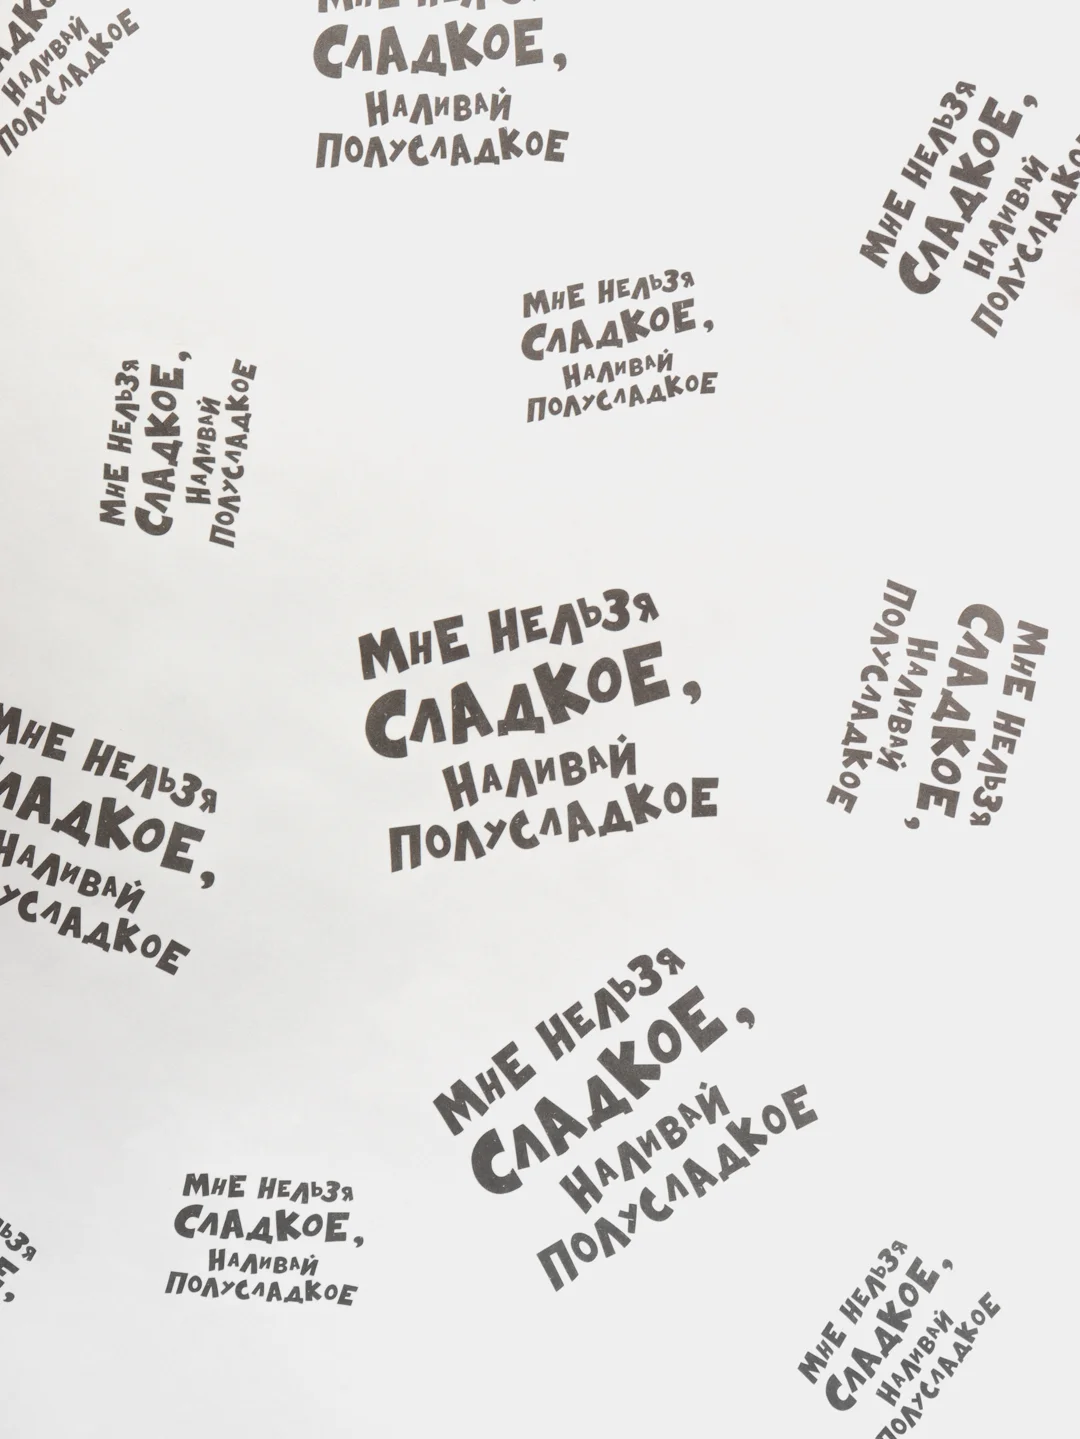 НАЛИВАЙ
ПОЛУСЛАДКОЕ
МНЕ НЕЛЬЗЯ
СЛАДКОЕ,
НАЛИВАЙ
ПОЛУСЛАДКОЕ
МНЕ НЕЛЬЗЯ
СЛАДКОЕ,
НАЛИВАЙ
ПОЛУСЛАДКОЕ
МНЕ НЕЛЬЗЯ
СЛАДКОЕ,
НАЛИВАЙ
ПОЛУСЛАДКОЕ
МНЕ НЕЛЬЗЯ
СЛАДКОЕ,
НАЛИВАЙ
ПОЛУСЛАДКОЕ
МНЕ НЕЛЬЗЯ
СЛАДКОЕ,
НАЛИВАЙ
ПОЛУСЛАДКОЕ
МНЕ НЕЛЬЗЯ
СЛАДКОЕ,
НАЛИВАЙ
ПОЛУСЛАДКОЕ
МНЕ НЕЛЬЗЯ
СЛАДКОЕ,
НАЛИВАЙ
УСЛАДКОЕ
МНЕ НЕЛЬЗЯ
СЛАДКОЕ,
НАЛИВАЙ
ПОЛУСЛАДКОЕ
МНЕ НЕЛЬЗЯ
СЛАДКОЕ,
НАЛИВАЙ
ПОЛУСЛАДКОЕ
МНЕ НЕЛЬЗЯ
СЛАДКОЕ,
НАЛИВАЙ
ПОЛУСЛАДКОЕ